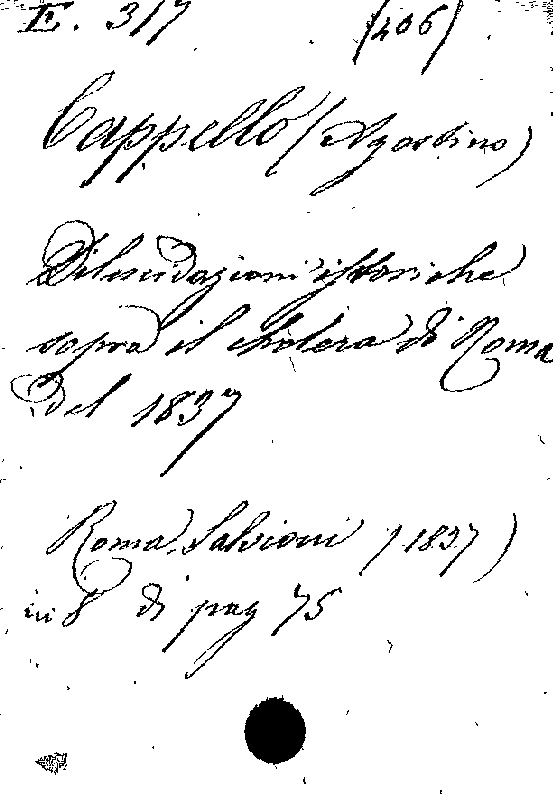 E. 317 (406)
Cappello (Agostino)
Dilucidazioni istoriche
sopra il cholera di Roma
del 1837
Roma, Salvioni (1837)
in 8° di pag 75